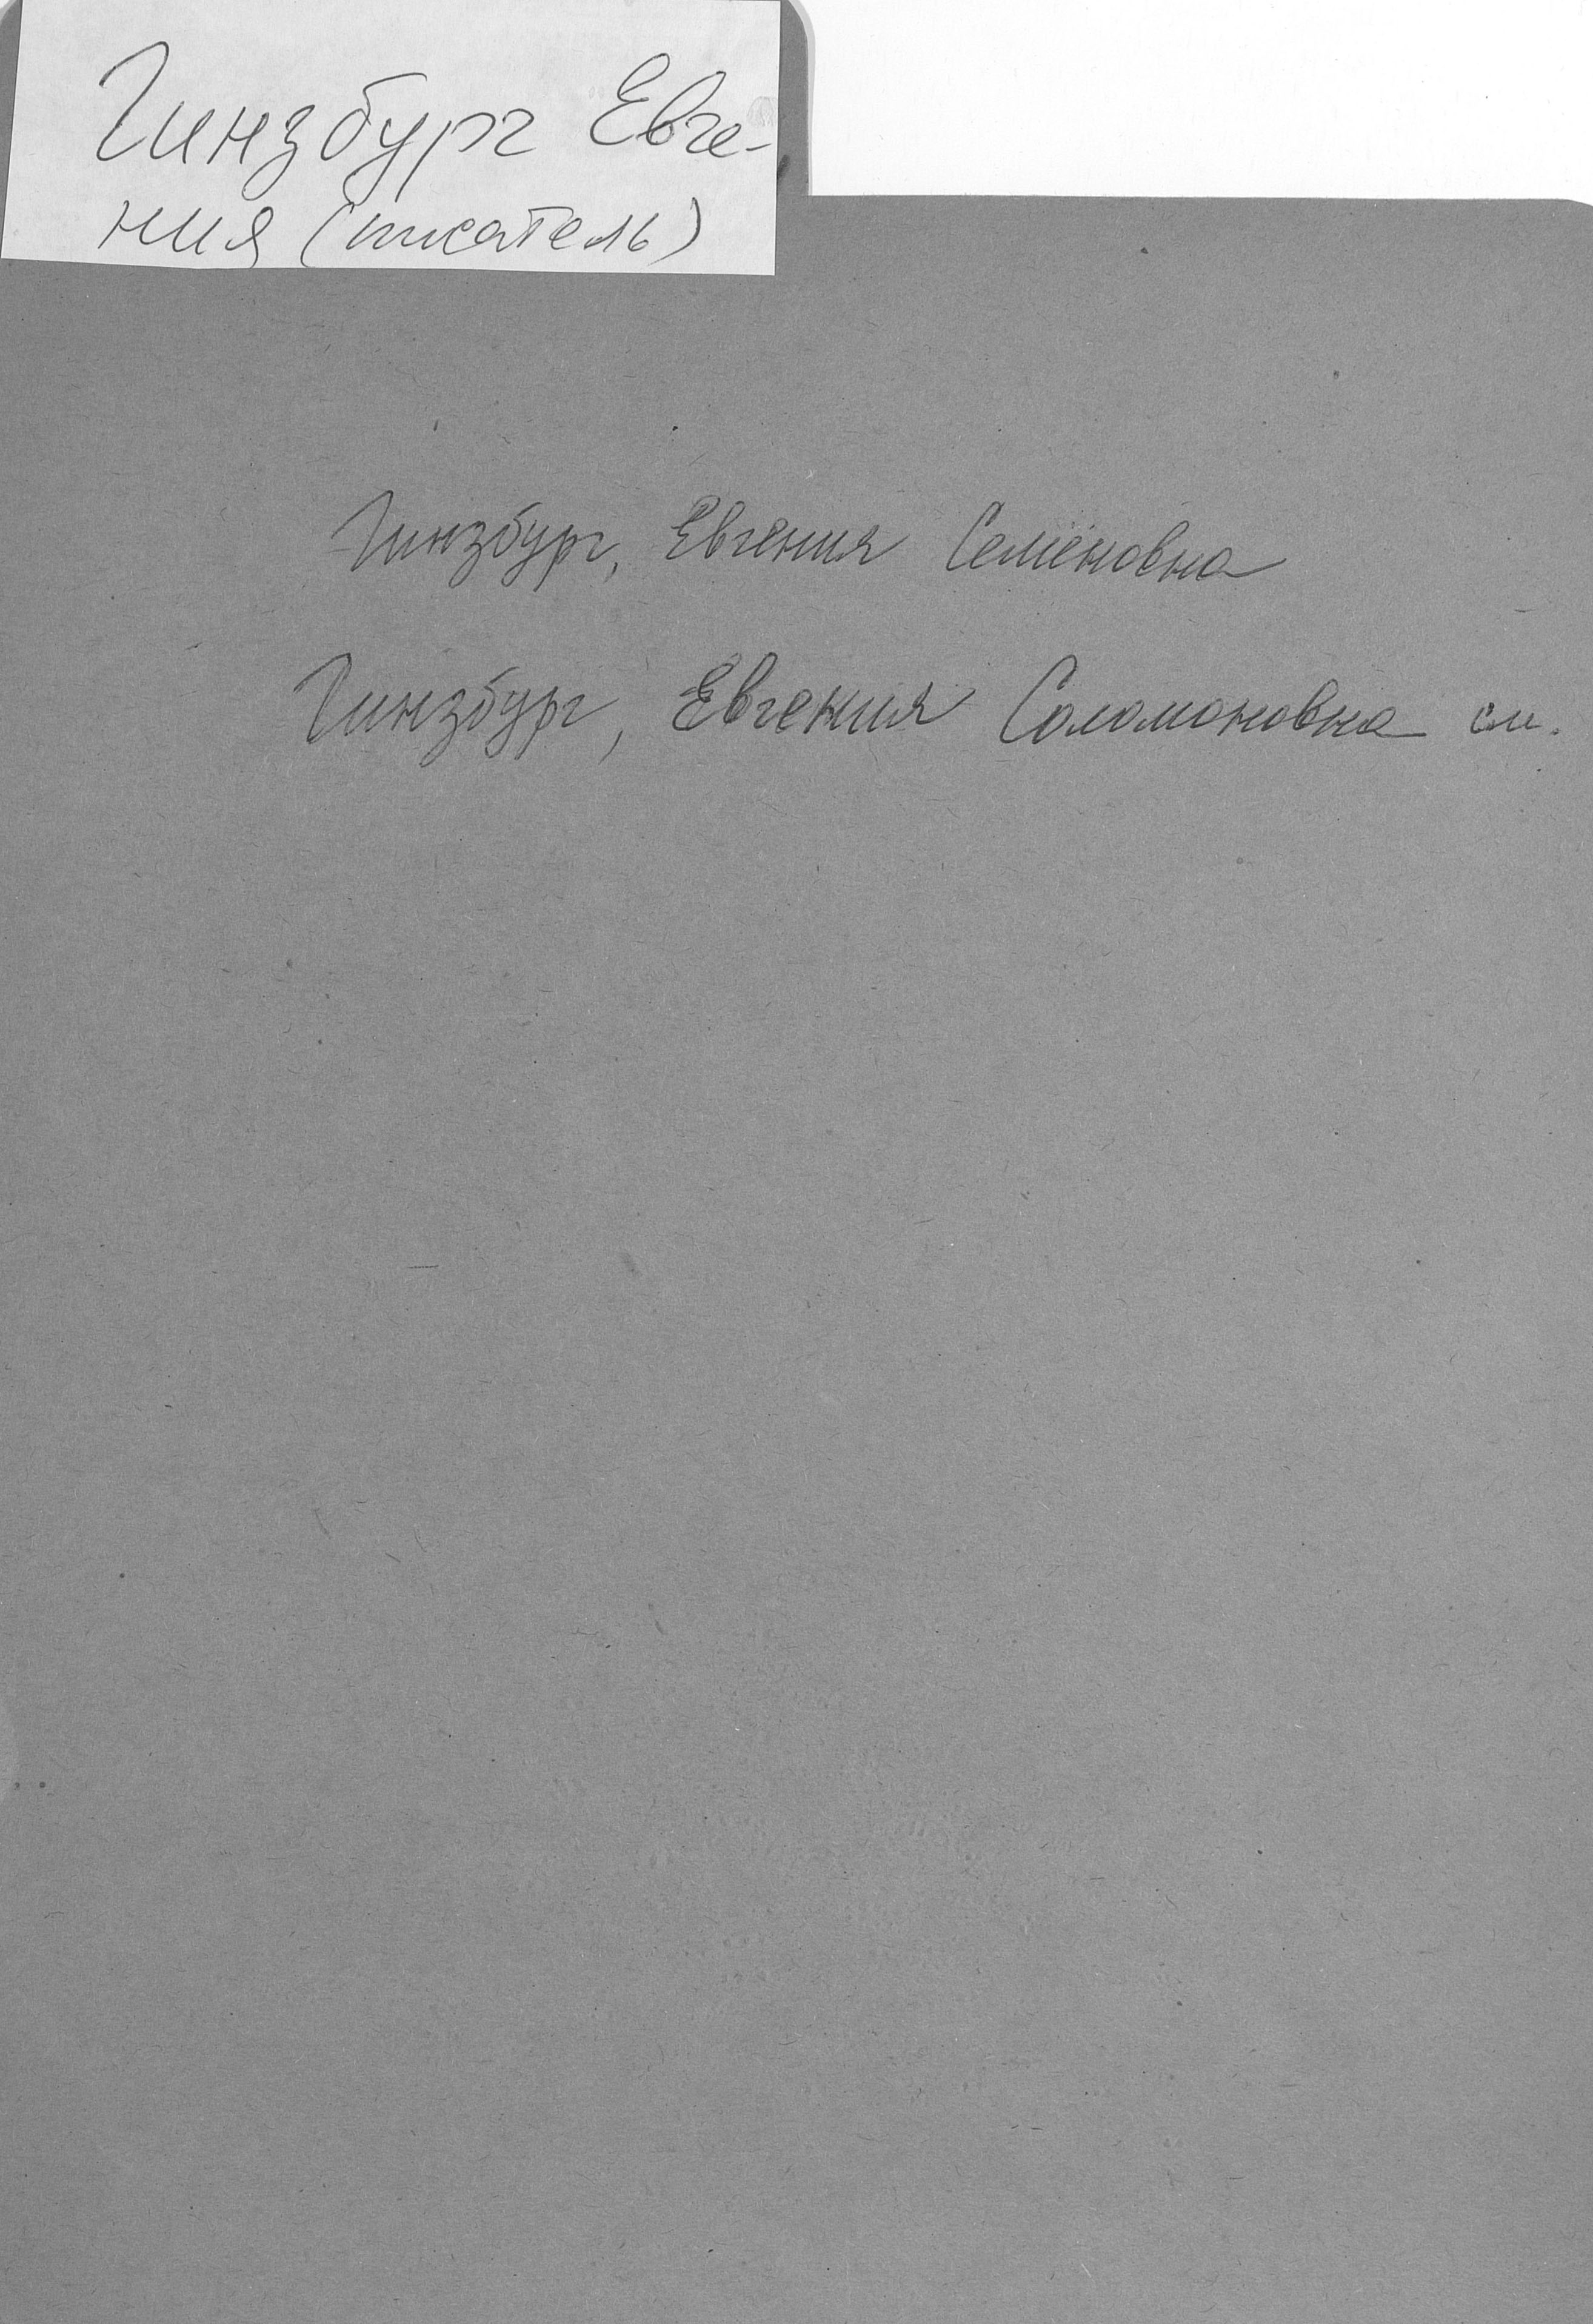 Гинзбург Евге-
ния (писатель)
Гинзбург, Евгения Семёновна
Гинзбург, Евгения Соломоновна см.